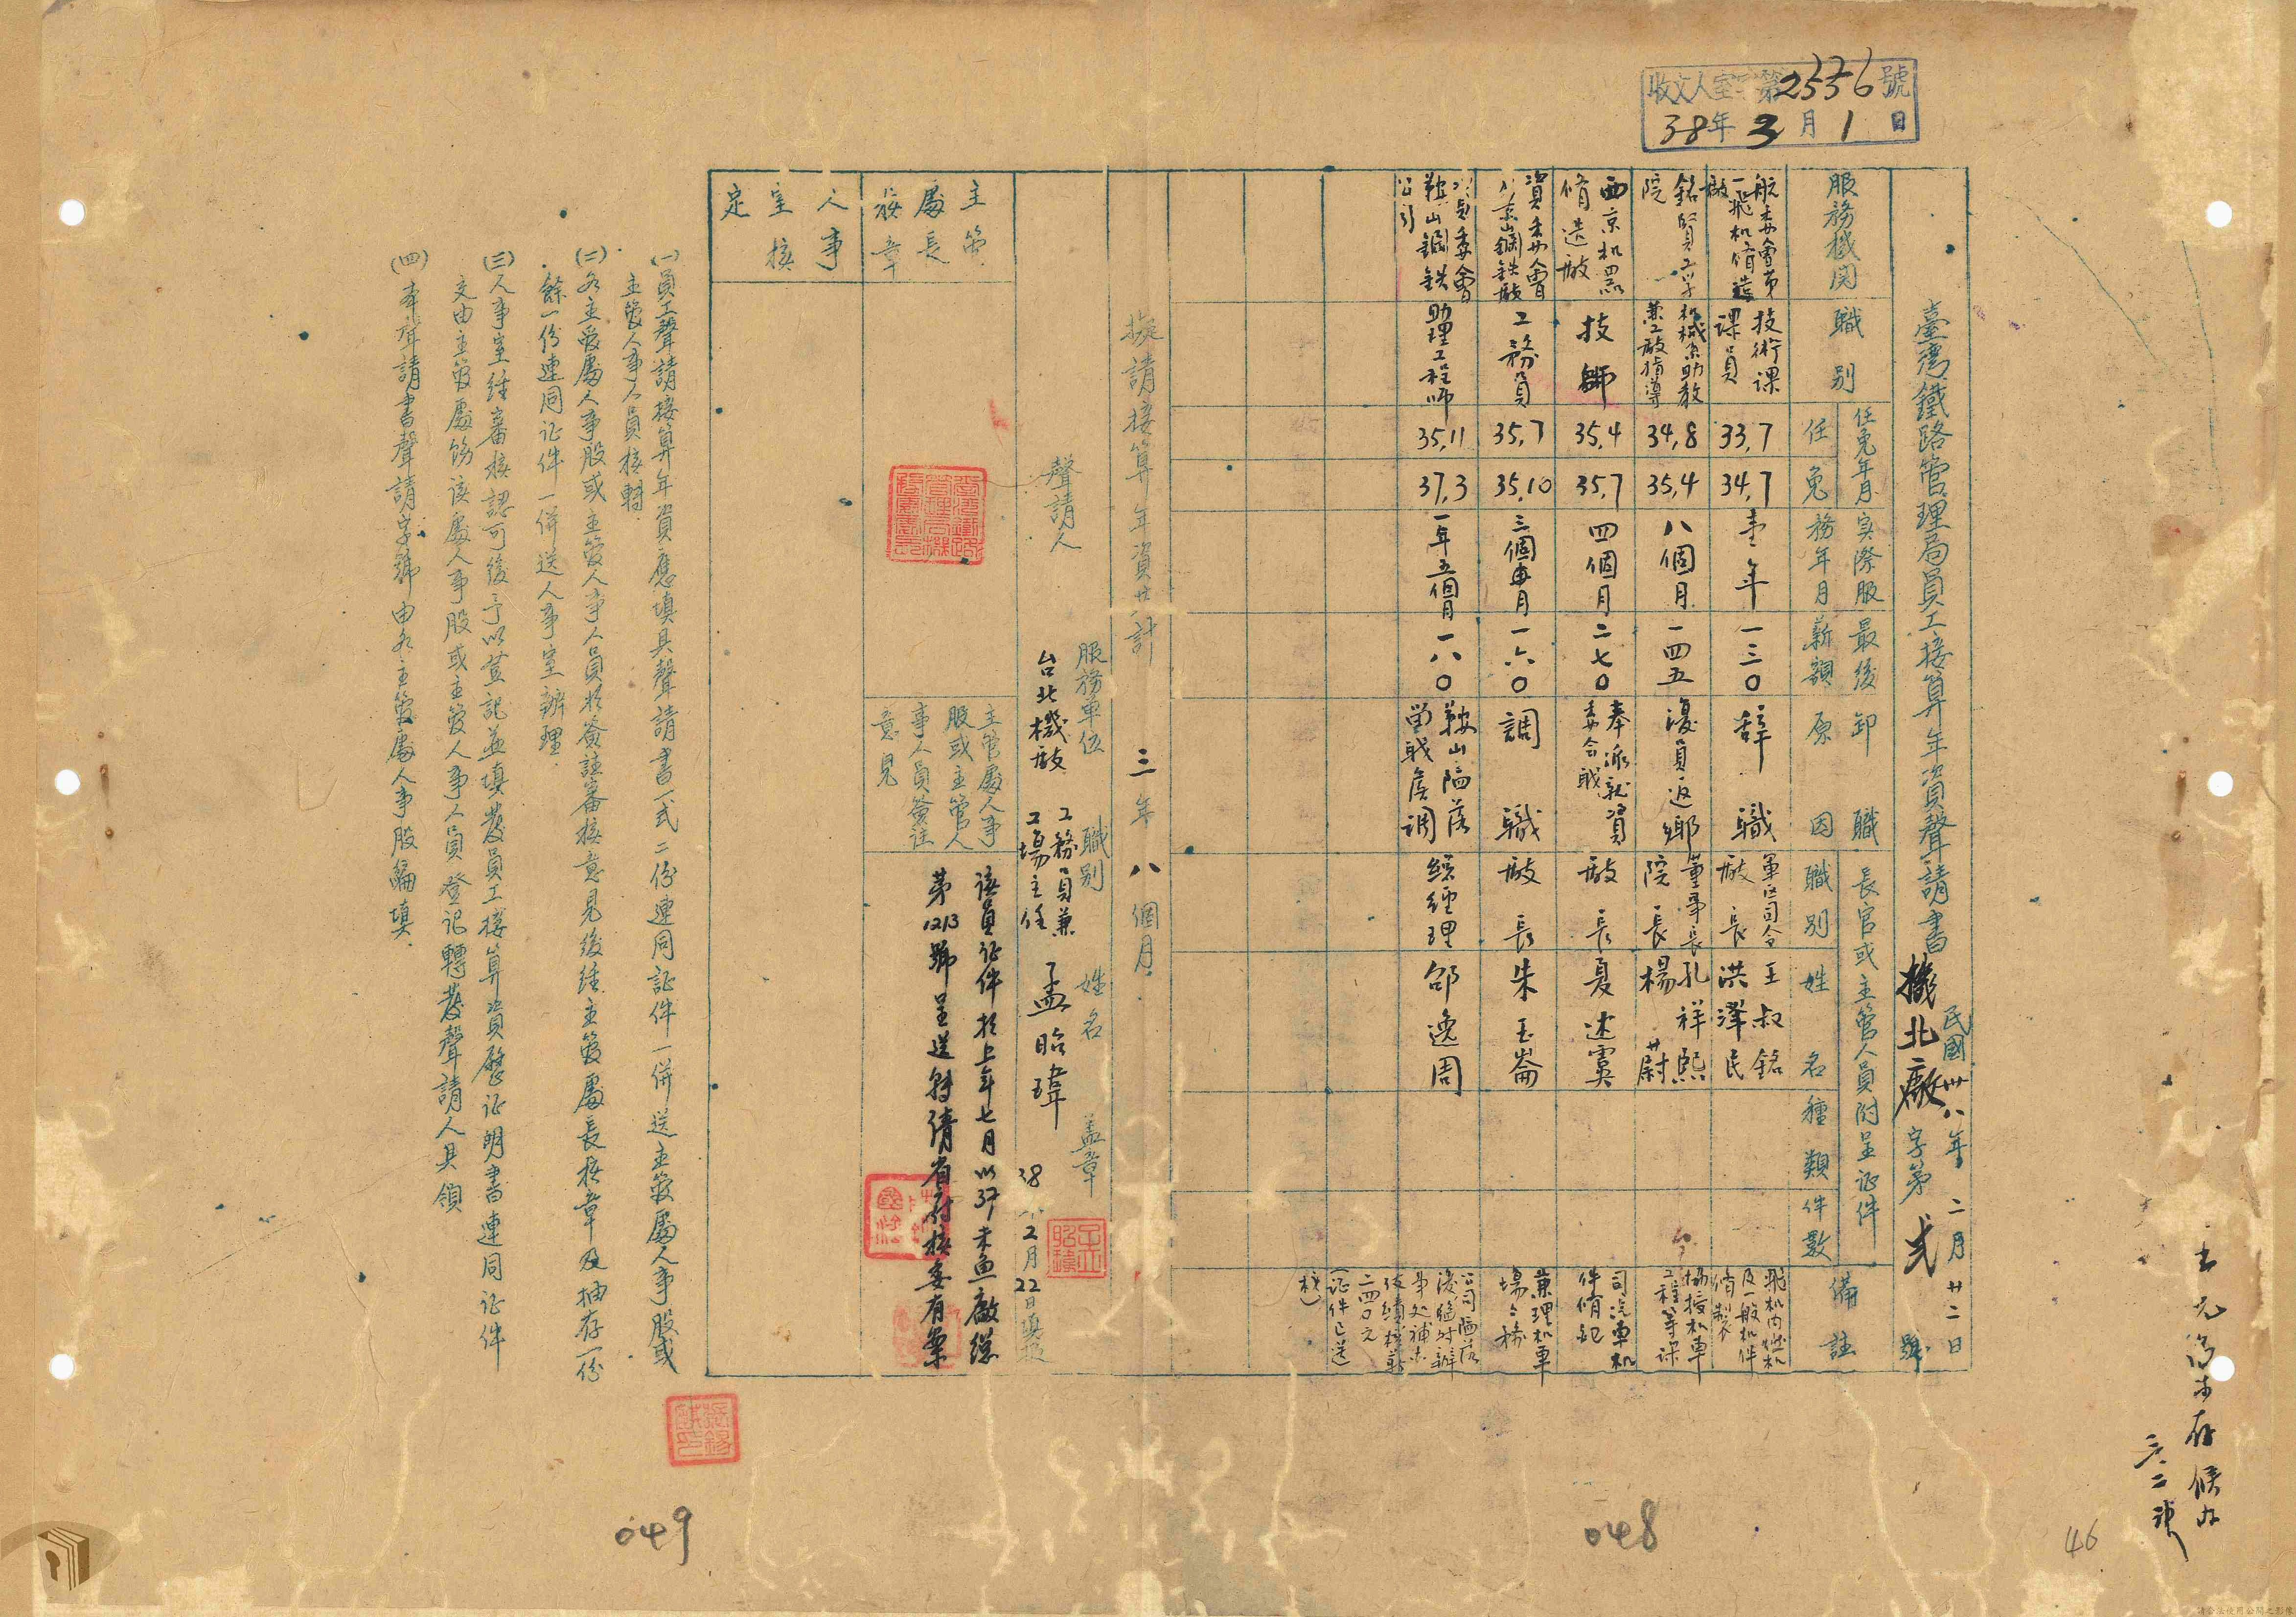 收文人室字第2536號
38年3月1日
臺灣鐵路管理局員工接算年資聲請書
民國卅八年二月廿二日
機北廠字第弍號
服務機関
職別
任免年月
任
免
實際服務年月
最後薪額
卸職原因
長官或主管人員
職別
姓名
附呈证件
種類
件數
備註
航委會第一飛机修造廠
技術課課員
33,7
34,7
壹年
一三〇
辞職
軍區司令
廠長
王叔銘
洪澤民
飛机內燃机及一般机件修製
銘賢工学院
机械系助教兼工廠指導
34,8
35,4
八個月
一四五
復員返鄉
董事長
院長
孔祥熙
楊蔚
教授机車工程等课
西京机器修造廠
技師
35,4
35,7
四個月
二七〇
奉派就資委会职
廠長
夏述虞
司汽車机件修配
資委會
鋼鉄廠
工務員
35,7
35,10
三個月
一六〇
調職
廠長
朱玉崙
兼理机車場工務
資委會鞍山鋼鉄公司
助理工程师
35,11
37,3
一年五個月
一八〇
鞍山陷落留职候調
總經理
邵逸周
公司陷落後總公司辦事处補
二四〇元
(证件已送
擬請接算年資共計 三年八個月
聲請人
服務單位
台北機廠
職別
工務員兼
工場主任
姓名
孟昭瑋
蓋章
38年2月22日填報
主管處長核章
主管處人事股或主管人事人員簽註意見
該員证件於上年七月以37未魚廠總
第1213號呈送轉請省府核委有案
人事室核定
(一)員工聲請接算年資應填具聲請書一式二份連同証件一併送主管處人事股或
主管人事人員核轉.
(二)各主管處人事股或主管人事人員於簽註審核意見後經主管處長核章及抽存一份
餘一份連同证件一併送人事室辦理.
(三)人事室經審核認可後予以登記並填發員工接算年資歷证明書連同证件
交由主管處飭該處人事股或主管人事人員登记轉發聲請人具領
(四)本聲請書聲請字號由各主管處人事股編填.
048
049
46